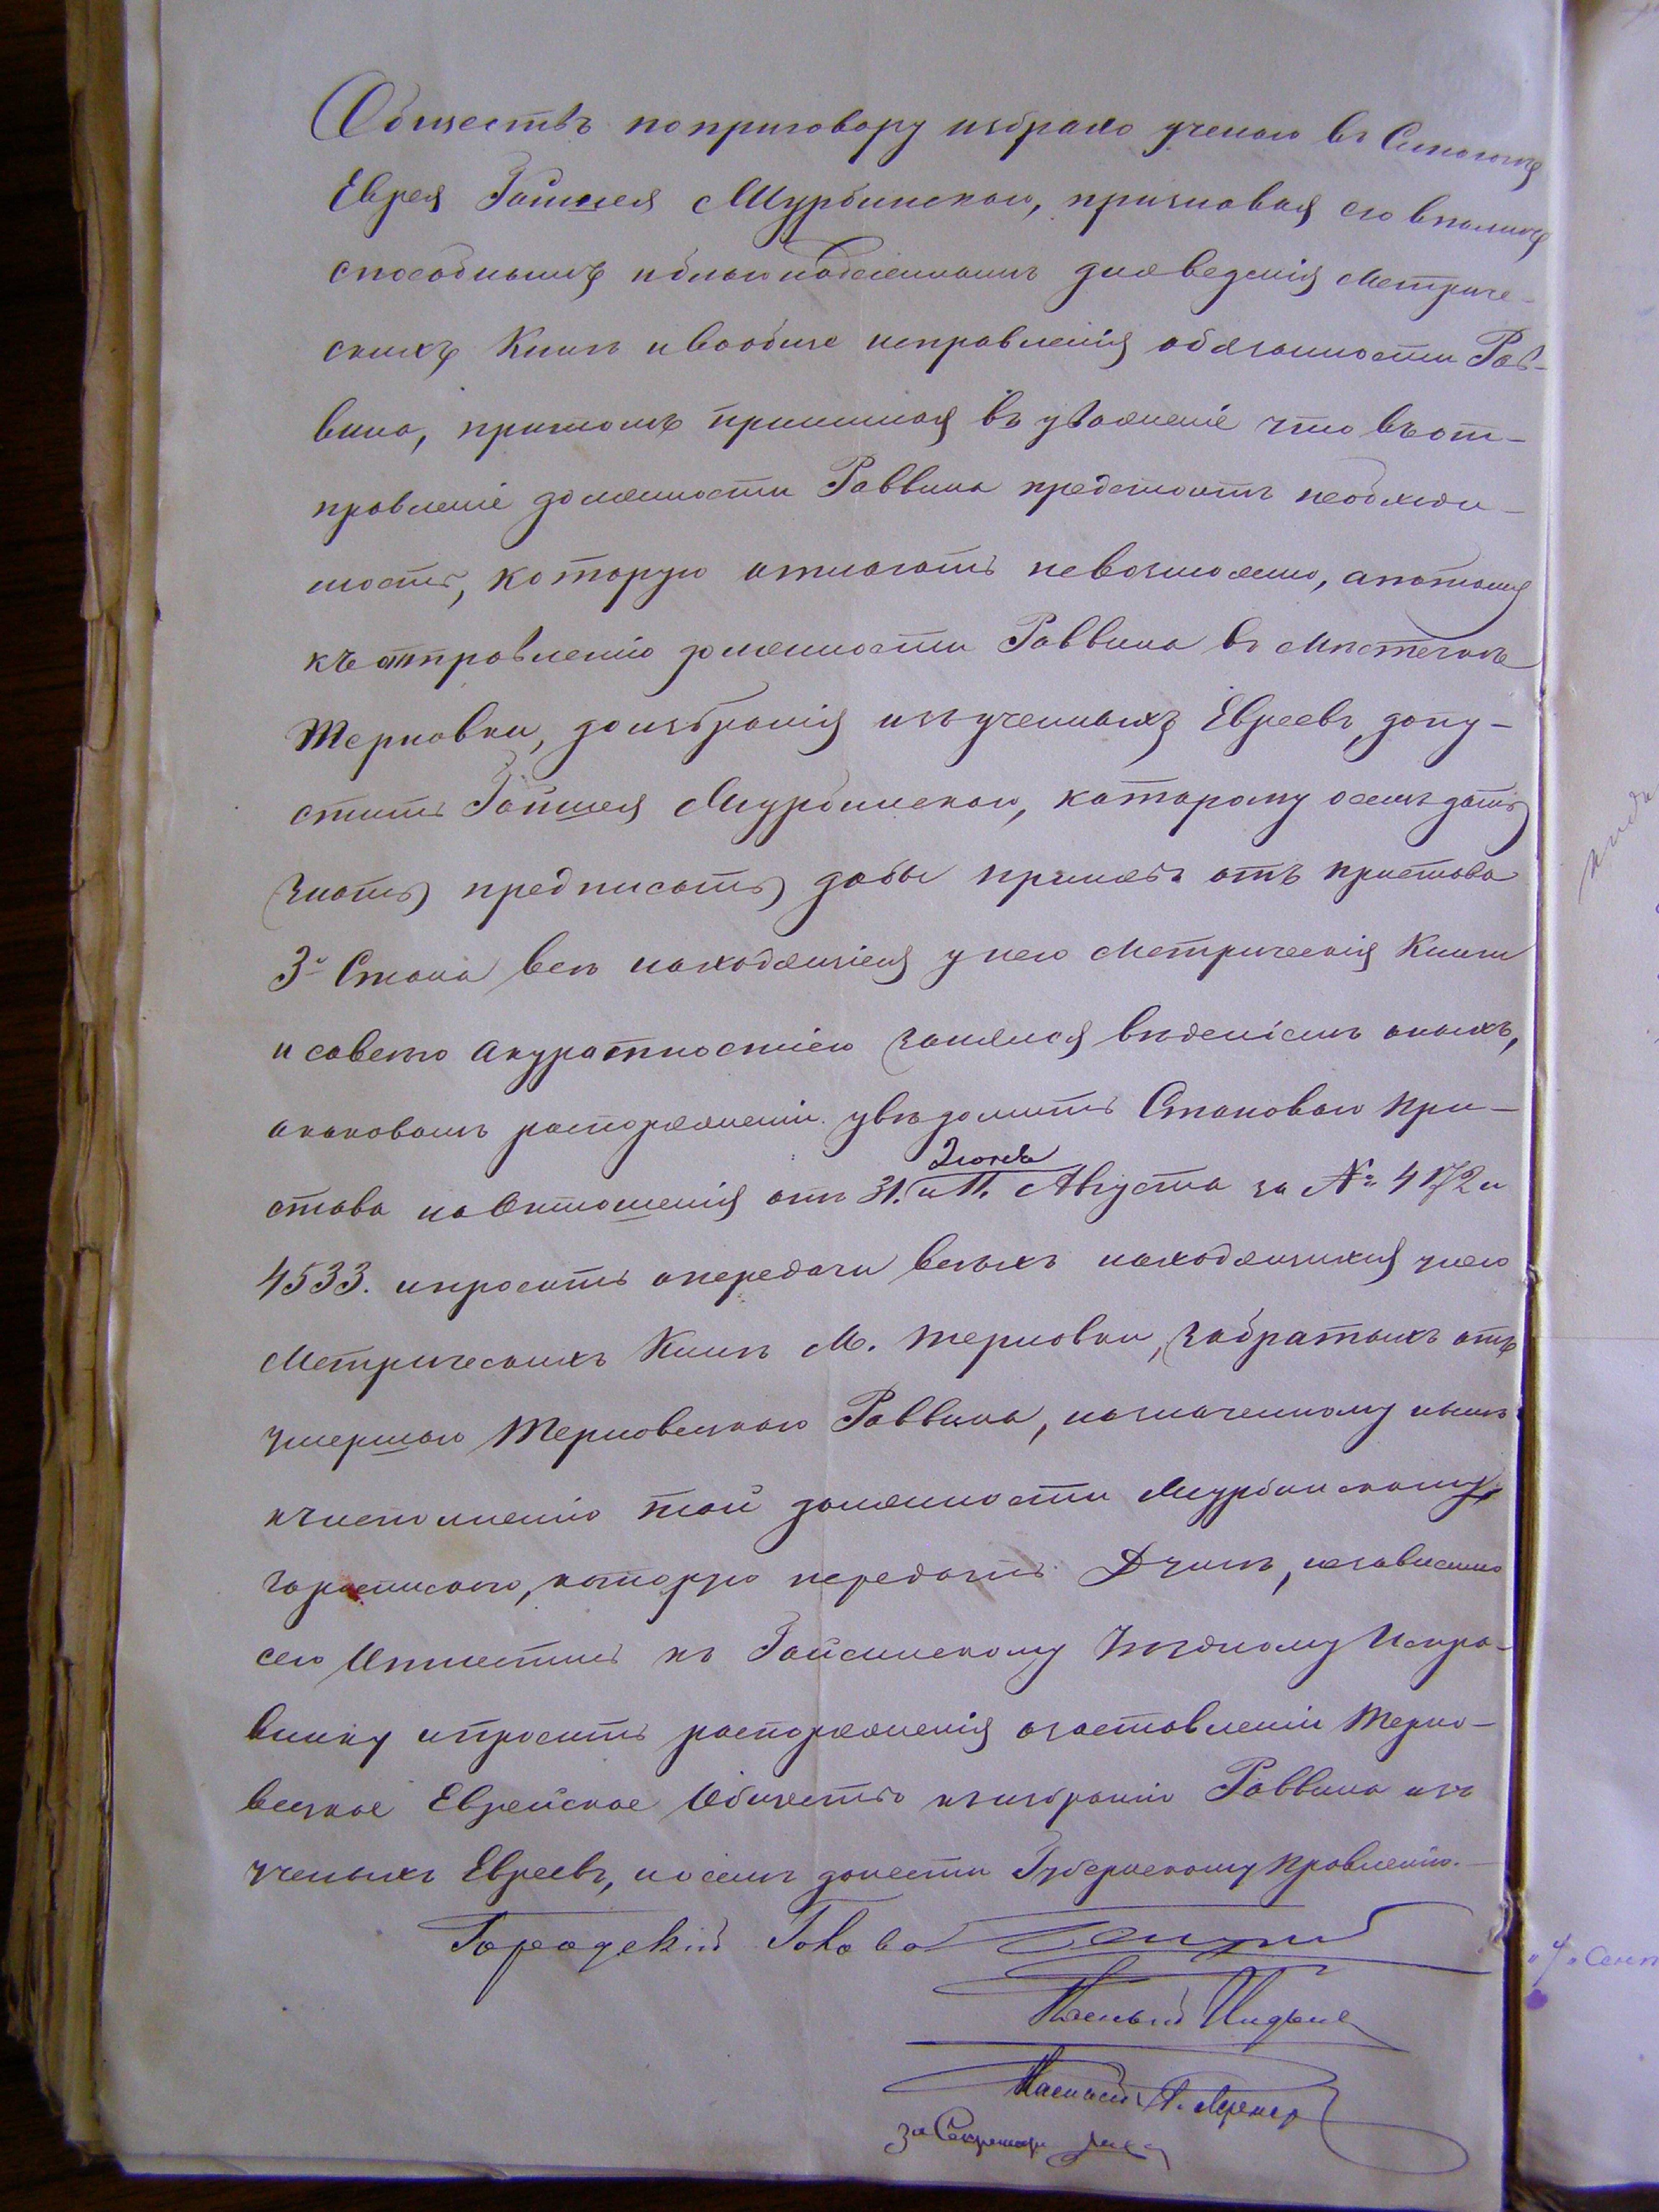 Обществъ по приговору избрало ученаго въ
Еврея Гошнея Мурбинскаго, признавая его вполнѣ
способнымъ и благонадежнымъ для веденія Метриче-
скихъ Книгъ и вообще исправленія обязанности Рав-
вина, притомъ принимая въ уваженіе что въ от-
правленіе должности Раввина предстоитъ необходи-
мость, которую отлагать невозможно, а потому
къ отправленію должности Раввина въ Мѣстечкѣ
Терновки, до избранія изъ ученныхъ Евреевъ, допу-
стить Гошнея Мурбинскаго, которому о семъ дать
знать предписать дабы принялъ отъ пристава
3го Стана всѣ находящіеся у него Метрическія Книги
и со всею акуратностію занялся вѣденіемъ оныхъ,
о каковомъ распоряженіи увѣдомить Становаго При-
става на Отношенія отъ 31. Іюля и 11. Августа за № 4172 и
4533. и просить о передачи всѣхъ находящихся у него
Метрическихъ Книгъ М. Терновки, забратыхъ отъ
умершаго Терновскаго Раввина, назначенному нынѣ
къ исполненію той должности Мурбинскому
за роспискою, которую передать Думѣ, независимо
сего Отнестись къ Гайсинскому Уѣздному Испра-
внику и просить распоряженія о заставленіи Терно-
вское Еврейское Общество къ избранію Раввина изъ
ученыхъ Евреевъ, и о семъ донести Губернскому Правленію.
Городскій Голова
Гласный
Гласный
за Секретаря
"4" Сент